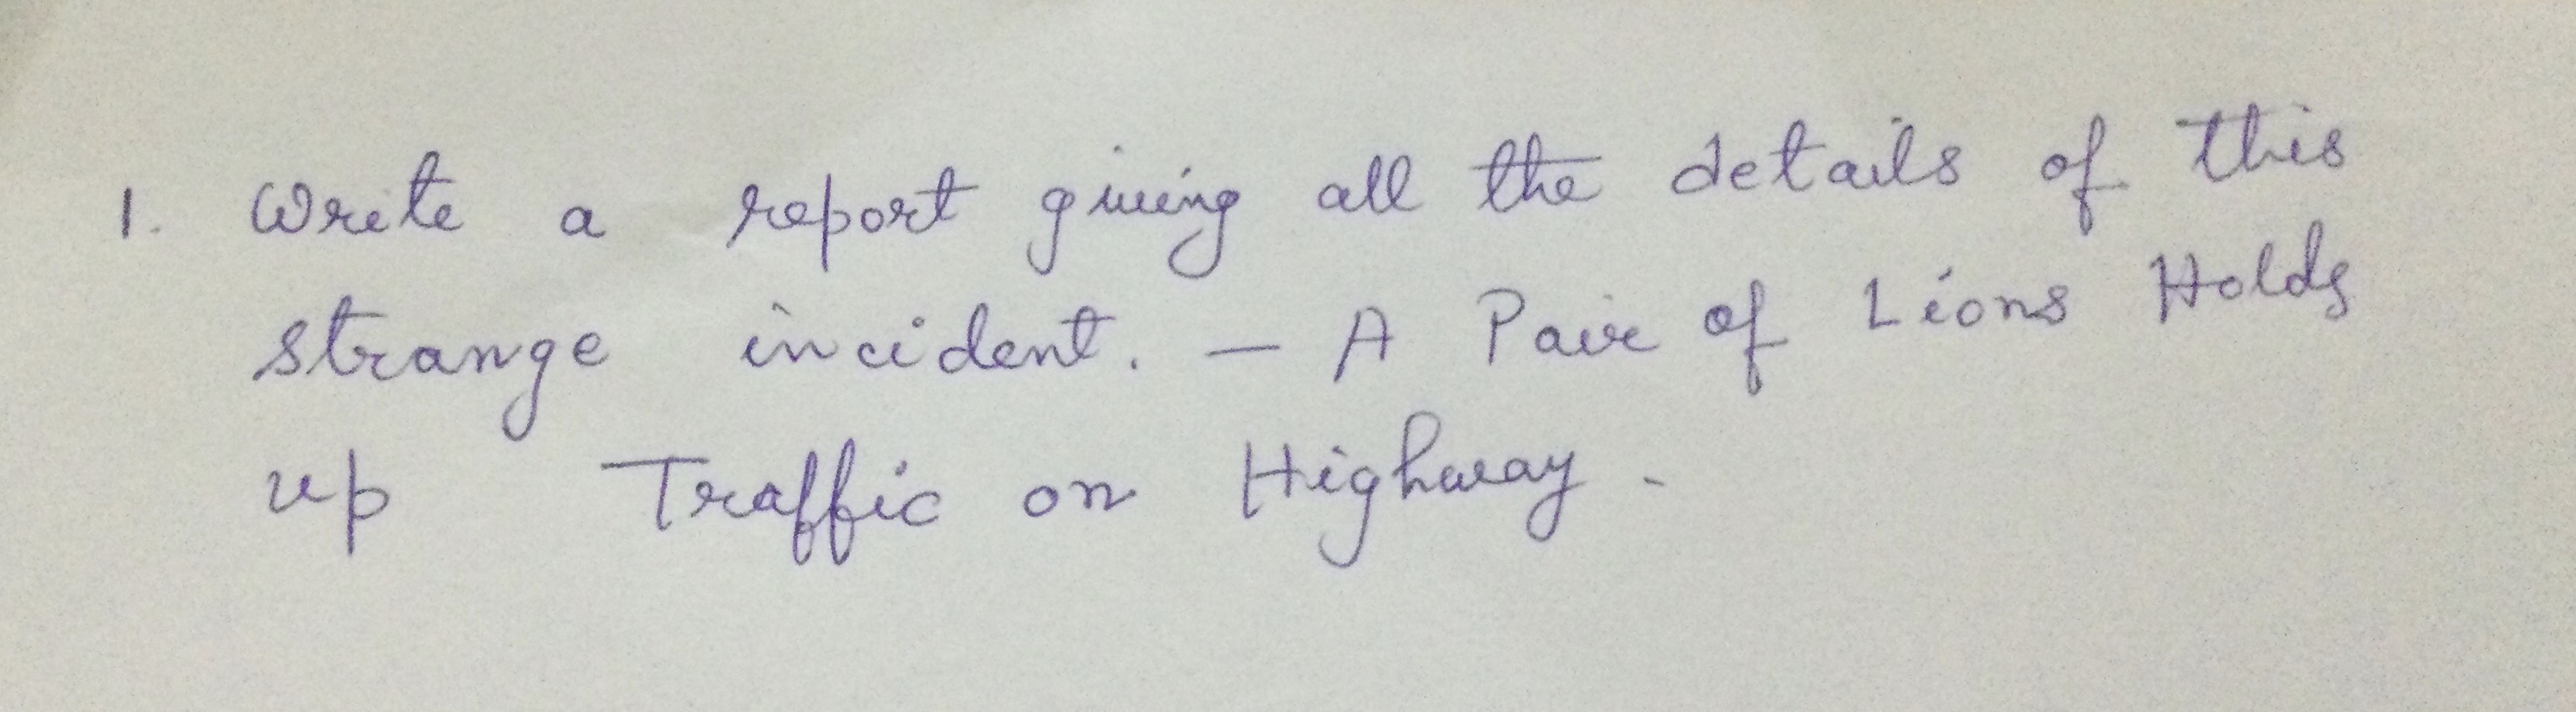 1. Write a report giving all the details of this
strange incident. - A Pair of Lions Holds
up Traffic on Highway.